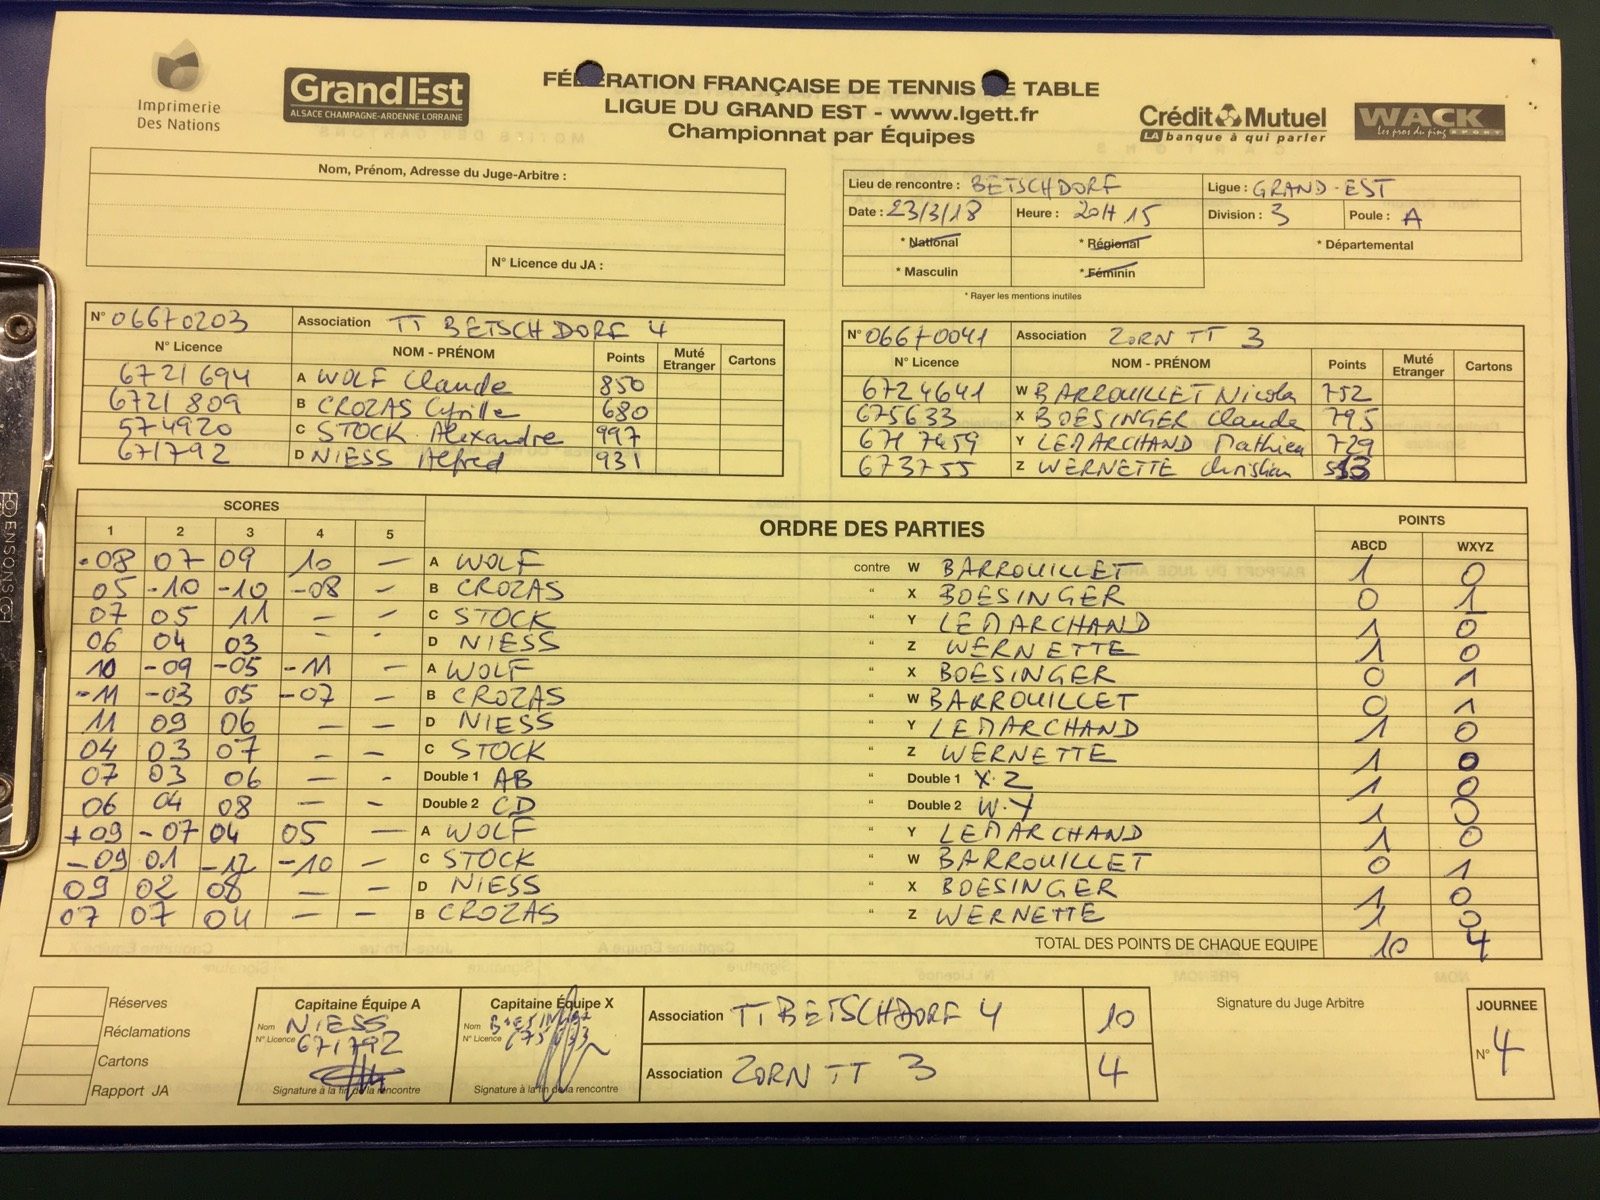 Imprimerie
Des Nations
Grand Est
ALSACE CHAMPAGNE-ARDENNE LORRAINE
FÉDÉRATION FRANÇAISE DE TENNIS DE TABLE
LIGUE DU GRAND EST - www.lgett.fr
Championnat par Équipes
Crédit Mutuel
LA banque à qui parler
WACK
Les pros du ping SPORT
Nom, Prénom, Adresse du Juge-Arbitre :
N° Licence du JA :
Lieu de rencontre : BETSCHDORF Ligue : GRAND-EST
Date : 23/3/18 Heure : 20H15 Division : 3 Poule : A
* National * Régional * Départemental
* Masculin * Féminin
* Rayer les mentions inutiles
N° 06670203 Association TT BETSCHDORF 4
N° Licence NOM - PRÉNOM Points Muté Etranger Cartons
6721694 A WOLF Claude 850
6721809 B CROZAS Cyrille 680
574920 C STOCK Alexandre 997
671792 D NIESS Alfred 931
N° 06670041 Association ZORN TT 3
N° Licence NOM - PRÉNOM Points Muté Etranger Cartons
6724641 W BARROUILLET Nicola 752
675633 X BOESINGER Claude 795
6717459 Y LEMARCHAND Mathieu 729
673755 Z WERNETTE Christian
SCORES ORDRE DES PARTIES POINTS
1 2 3 4 5 ABCD WXYZ
-08 07 09 10 — A WOLF contre W BARROUILLET 1 0
05 -10 -10 -08 — B CROZAS " X BOESINGER 0 1
07 05 11 — — C STOCK " Y LEMARCHAND 1 0
06 04 03 - - D NIESS " Z WERNETTE 1 0
10 -09 -05 -11 — A WOLF " X BOESINGER 0 1
-11 -03 05 -07 — B CROZAS " W BARROUILLET 0 1
11 09 06 — — D NIESS " Y LEMARCHAND 1 0
04 03 07 — — C STOCK " Z WERNETTE 1 0
07 03 06 — - Double 1 AB " Double 1 X-Z 1 0
06 04 08 — - Double 2 CD " Double 2 W-Y 1 0
+09 -07 04 05 — A WOLF " Y LEMARCHAND 1 0
-09 01 -12 -10 — C STOCK " W BARROUILLET 0 1
09 02 08 — — D NIESS " X BOESINGER 1 0
07 07 04 — — B CROZAS " Z WERNETTE 1 0
TOTAL DES POINTS DE CHAQUE EQUIPE 10 4
Réserves
Réclamations
Cartons
Rapport JA
Capitaine Équipe A
Nom NIESS
N° Licence 671792
Signature à la fin de la rencontre
Capitaine Équipe X
Nom BOESINGER
N° Licence 675633
Signature à la fin de la rencontre
Association TT BETSCHDORF 4 10
Association ZORN TT 3 4
Signature du Juge Arbitre
JOURNEE
N° 4